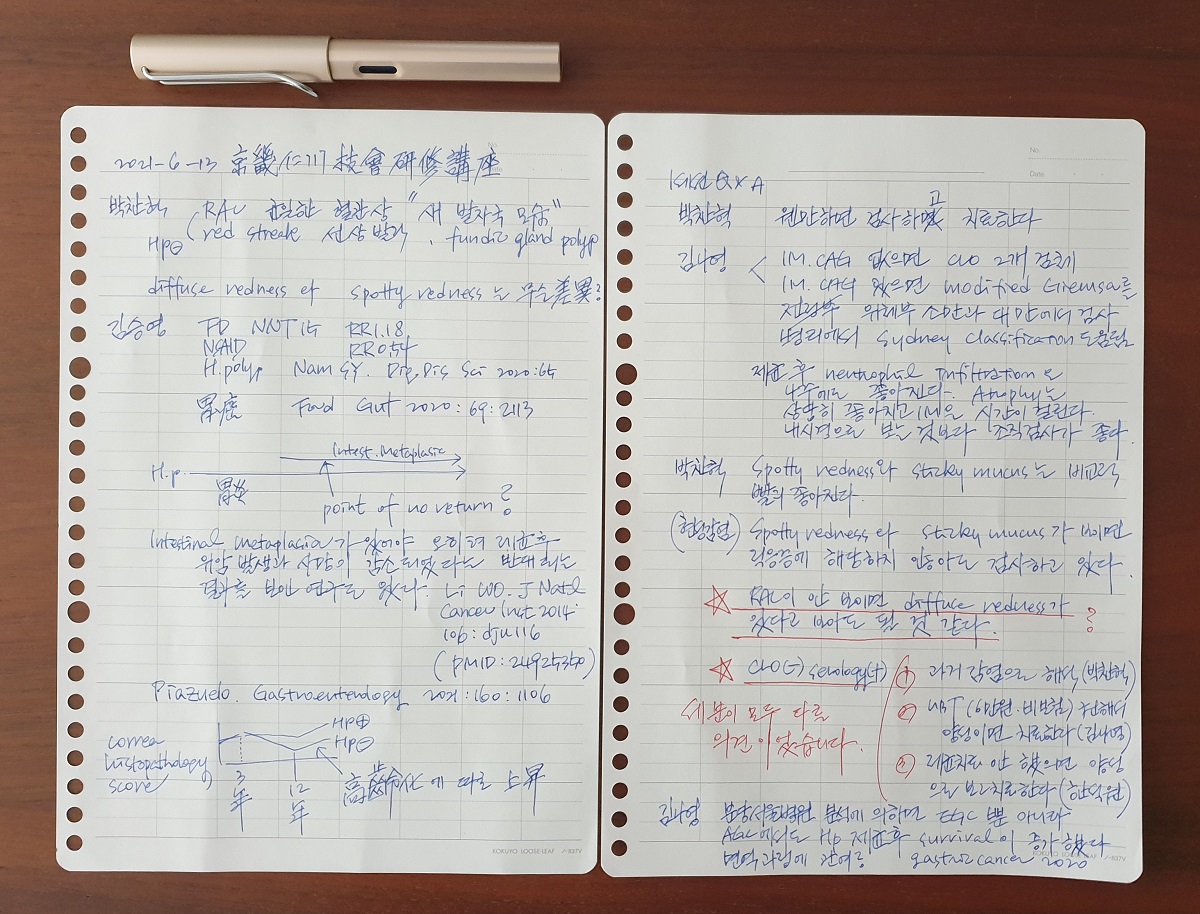 2021-6-13 京畿仁川 技會研修講座
박찬혁 RAC 균일한 혈관상 "새 발자국 모양"
Hp⊖ red streak 선상발적, fundic gland polyp
diffuse redness 와 spotty redness 는 무슨 差異?
김승영 FD NNT 15 RR 1.18
NSAID RR 0.54
H.polyp Nam SY. Dig Dis Sci 2020:65
胃癌 Ford Gut 2020:69:2113
Intest. metaplasia
H.p. 胃炎
point of no return?
Intestinal metaplasia가 있어야 오히려 제균후
위암 발생과 사망이 감소되었다는 반대되는
결과를 보인 연구도 있다. Li WQ. J Natl
Cancer Inst 2014:
106:dju116
(PMID: 24925350)
Piazuelo. Gastroenterology 2021:160:1106
correa
histopathology
score
Hp⊕
Hp⊖
3年
12年
高齡化에 따로 上昇
KOKUYO LOOSE-LEAF ノ-837V
No.
Date
Q & A
박찬혁 원만하면 검사하고 치료한다
김나영 IM.CAG 없으면 CLO 2개 검체
IM.CAG 있으면 modified Giemsa를
전정부 위체부 소만과 대만에서 검사
병리에서 Sydney Classification 도움됨
제균 후 neutrophil infiltration은
좋아진다. Atrophy는
상당히 좋아지고 IM은 시간이 걸린다.
내시경으로 보는 것보다 조직검사가 좋다.
박찬혁 Spotty redness와 sticky mucus는 비교적
빨리 좋아진다.
(현성감염) Spotty redness와 sticky mucus가 보이면
적응증에 해당하지 않아도 검사하고 있다.
☆ RAC이 안 보이면 diffuse redness가
있다고 보아도 될 것 같다. ?
☆ CLO(-) serology(+)
① 과거 감염으로 해석 (박찬혁)
세 분이 모두 다른
의견이었습니다.
② UBT (6만원·비보험) 권해서
양성이면 치료한다 (김나영)
③ 제균치료 안 했으면 양성
으로 보고 치료한다 (한덕원)
김나영 분당서울병원 분석에 의하면 EGC 뿐 아니라
AGC에서도 Hp 제균후 survival이 증가했다
면역과정에 관여 gastric cancer 2020